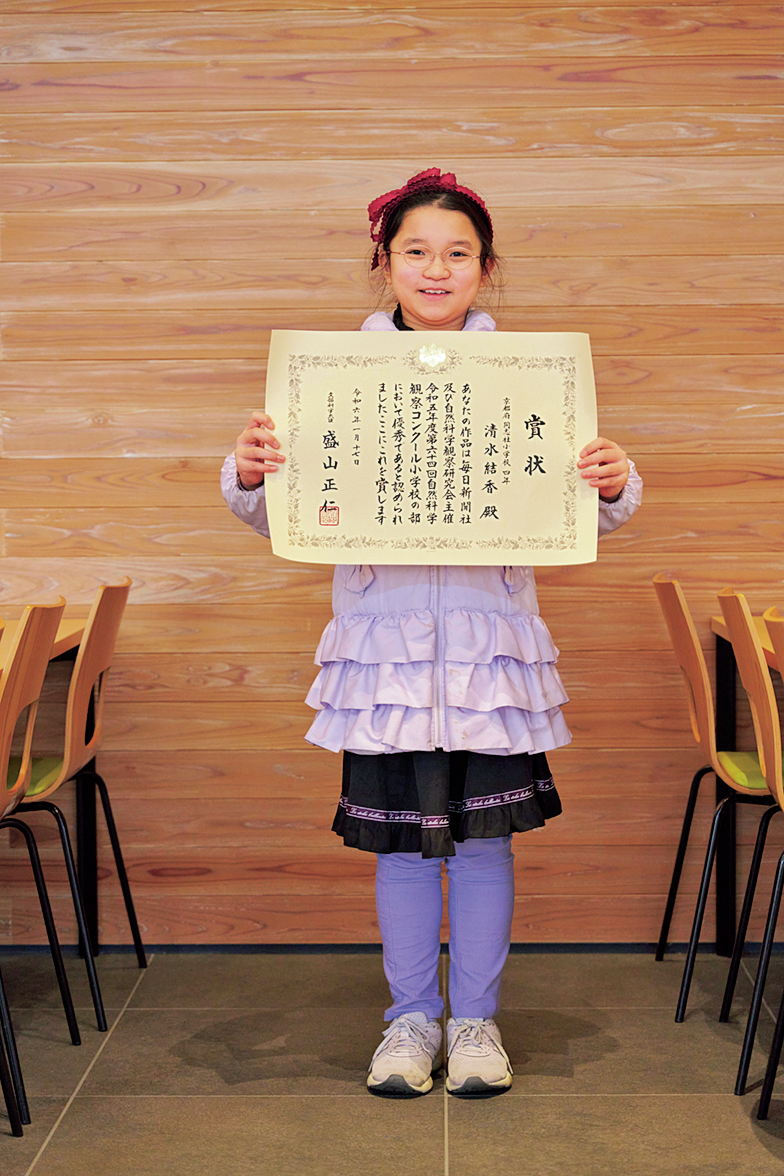 賞状
京都府 同志社小学校 四年
清水結香 殿
あなたの作品は毎日新聞社
及び自然科学観察研究会主催
令和五年度第六十四回自然科学
観察コンクール小学校の部
において優秀であると認められ
ましたここにこれを賞します
令和六年一月十七日
文部科学大臣
盛山正仁